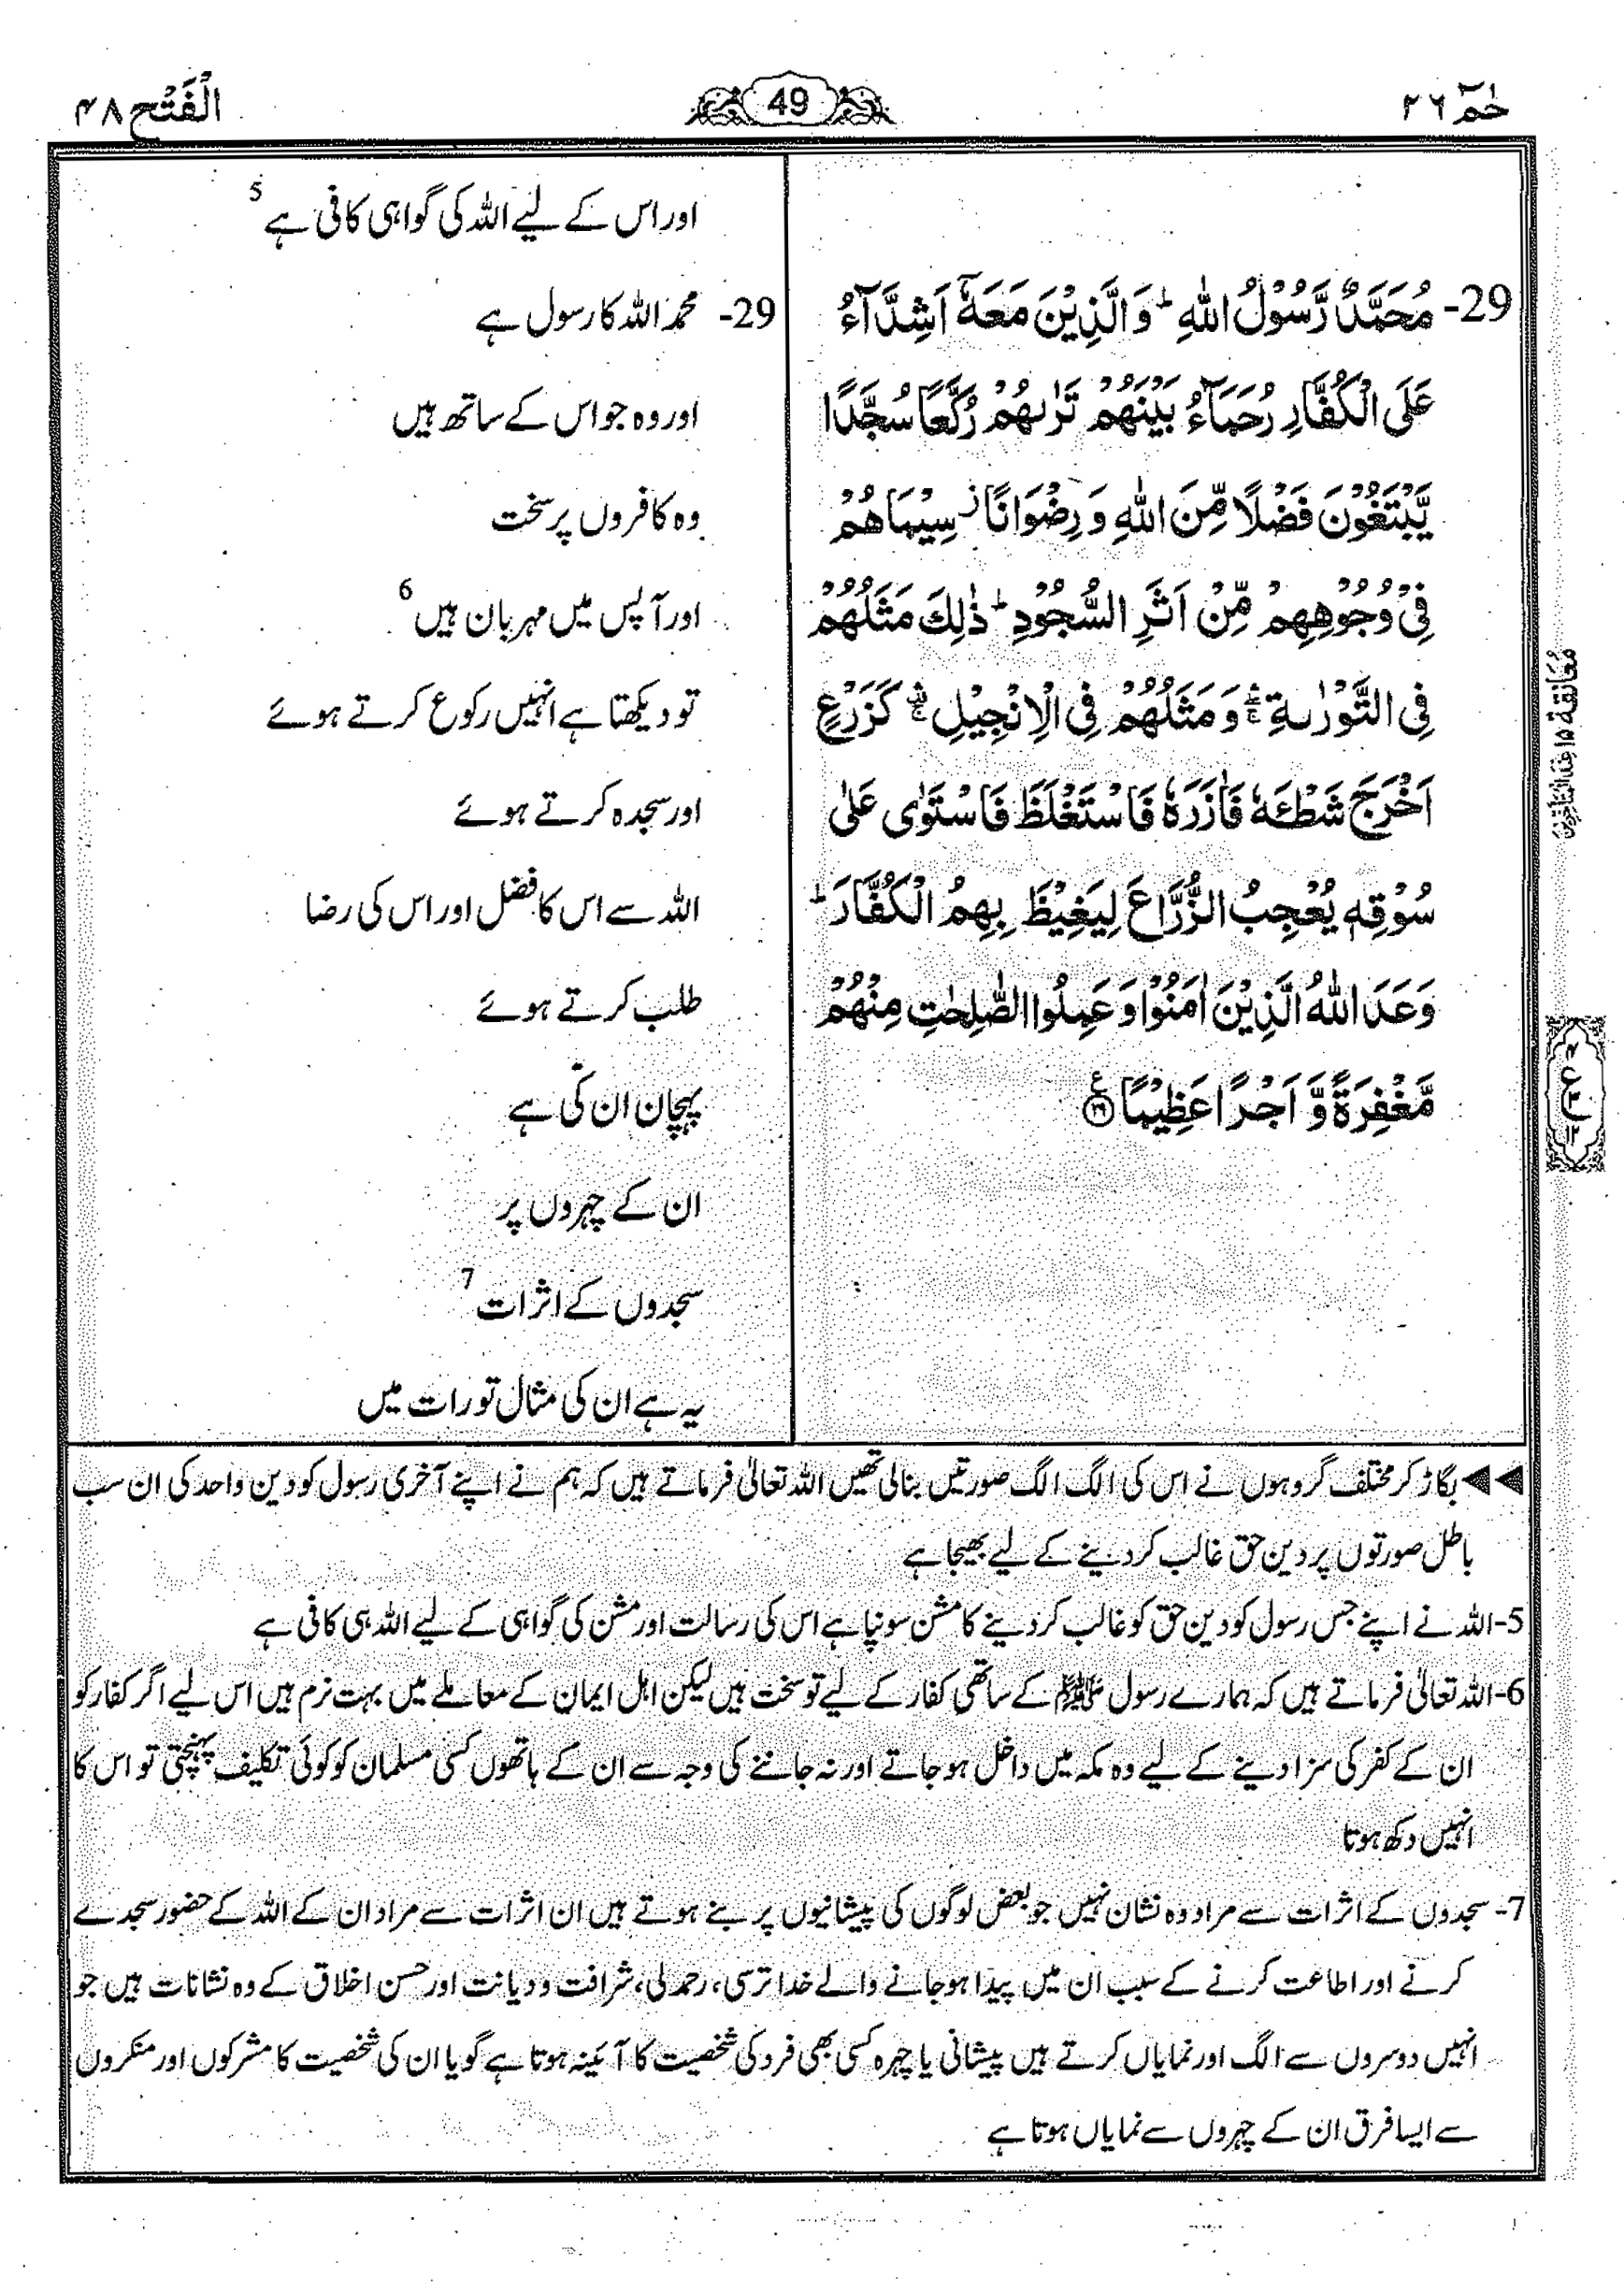 حٰمٓ ۲۶
49
الْفَتْح ۴۸
29- مُحَمَّدٌ رَّسُوْلُ اللّٰهِ ؕ وَ الَّذِیْنَ مَعَهٗۤ اَشِدَّآءُ
عَلَی الْكُفَّارِ رُحَمَآءُ بَیْنَهُمْ تَرٰىهُمْ رُكَّعًا سُجَّدًا
یَّبْتَغُوْنَ فَضْلًا مِّنَ اللّٰهِ وَ رِضْوَانًا ؗ سِیْمَاهُمْ
فِیْ وُجُوْهِهِمْ مِّنْ اَثَرِ السُّجُوْدِ ؕ ذٰلِكَ مَثَلُهُمْ
فِی التَّوْرٰىةِ ۛۖۚ وَ مَثَلُهُمْ فِی الْاِنْجِیْلِ ۛ۫ۚ كَزَرْعٍ
اَخْرَجَ شَطْـَٔهٗ فَاٰزَرَهٗ فَاسْتَغْلَظَ فَاسْتَوٰی عَلٰی
سُوْقِهٖ یُعْجِبُ الزُّرَّاعَ لِیَغِیْظَ بِهِمُ الْكُفَّارَ ؕ
وَعَدَ اللّٰهُ الَّذِیْنَ اٰمَنُوْا وَ عَمِلُوا الصّٰلِحٰتِ مِنْهُمْ
مَّغْفِرَةً وَّ اَجْرًا عَظِیْمًا ﴿۲۹﴾ ع
اور اس کے لیے اللہ کی گواہی کافی ہے 5
29- محمدؐ اللہ کا رسول ہے
اور وہ جو اس کے ساتھ ہیں
وہ کافروں پر سخت
اور آپس میں مہربان ہیں 6
تو دیکھتا ہے انہیں رکوع کرتے ہوئے
اور سجدہ کرتے ہوئے
اللہ سے اس کا فضل اور اس کی رضا
طلب کرتے ہوئے
پہچان ان کی ہے
ان کے چہروں پر
سجدوں کے اثرات 7
یہ ہے ان کی مثال تورات میں
بگاڑ کر مختلف گروہوں نے اس کی الگ الگ صورتیں بنالی تھیں اللہ تعالیٰ فرماتے ہیں کہ ہم نے اپنے آخری رسول کو دین واحد کی ان سب
باطل صورتوں پر دین حق غالب کردینے کے لیے بھیجا ہے
5- اللہ نے اپنے جس رسول کو دین حق کو غالب کردینے کا مشن سونپا ہے اس کی رسالت اور مشن کی گواہی کے لیے اللہ ہی کافی ہے
6- اللہ تعالیٰ فرماتے ہیں کہ ہمارے رسول ﷺ کے ساتھی کفار کے لیے تو سخت ہیں لیکن اہل ایمان کے معاملے میں بہت نرم ہیں اس لیے اگر کفار کو
ان کے کفر کی سزا دینے کے لیے وہ مکہ میں داخل ہوجاتے اور نہ جاننے کی وجہ سے ان کے ہاتھوں کسی مسلمان کو کوئی تکلیف پہنچتی تو اس کا
انہیں دکھ ہوتا
7- سجدوں کے اثرات سے مراد وہ نشان نہیں جو بعض لوگوں کی پیشانیوں پر بنے ہوتے ہیں ان اثرات سے مراد ان کے اللہ کے حضور سجدے
کرنے اور اطاعت کرنے کے سبب ان میں پیدا ہوجانے والے خدا ترسی، رحمدلی، شرافت و دیانت اور حسن اخلاق کے وہ نشانات ہیں جو
انہیں دوسروں سے الگ اور نمایاں کرتے ہیں پیشانی یا چہرہ کسی بھی فرد کی شخصیت کا آئینہ ہوتا ہے گویا ان کی شخصیت کا مشرکوں اور منکروں
سے ایسا فرق ان کے چہروں سے نمایاں ہوتا ہے